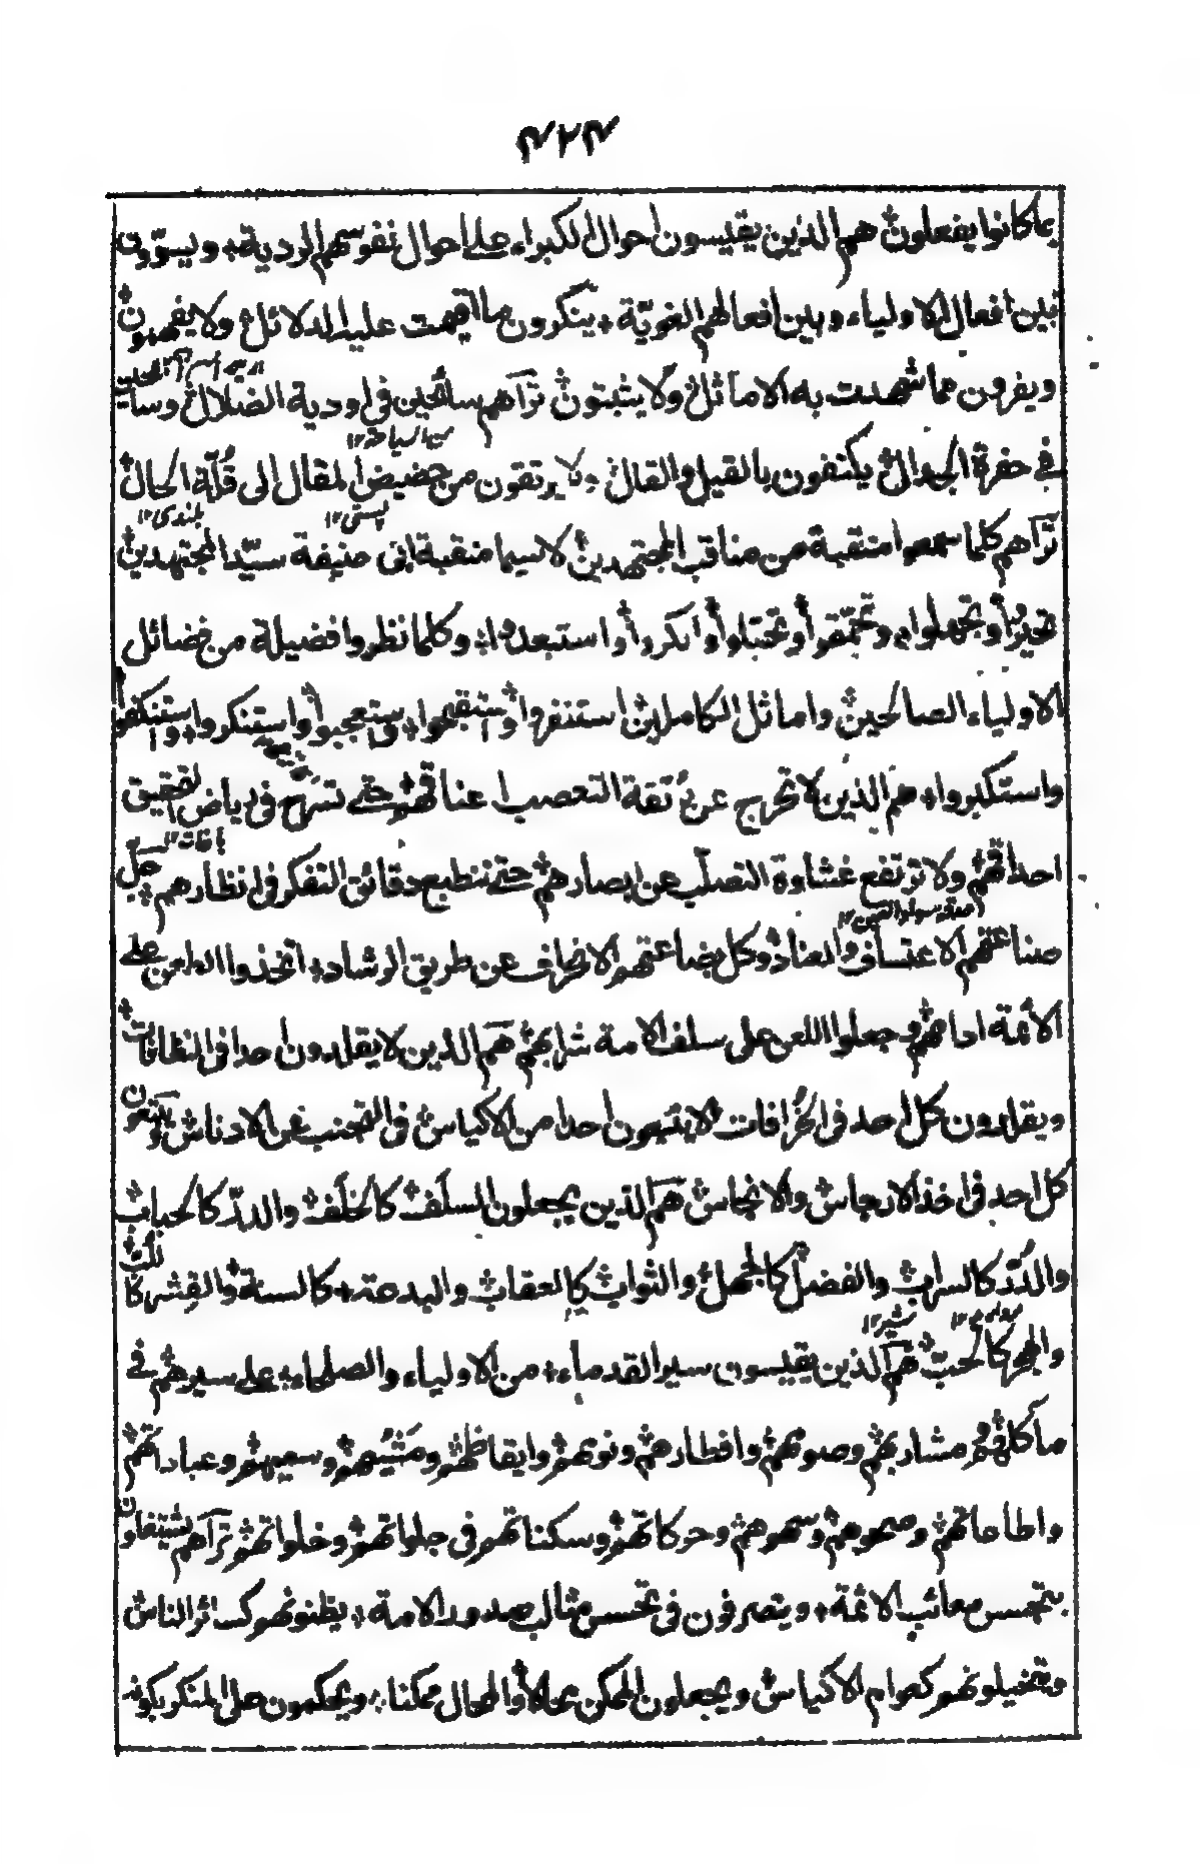 ۴۲۴
بما كانوا يفعلون هم الذين يقيسون احوال الكبراء على احوال نفوسهم الردية ويسوّون
بين افعال الاولياء وبين افعالهم الغويّة ينكرون ما اقيمت عليه الدلائل ولا يفهمون
ويفرون مما شهدت به الاماثل ولا يثبتون تراهم سائحين فى اودية الضلال
من السياحة ١٢
فى حفرة الجدال يكتفون بالقيل والقال ولا يرتقون من حضيض المقال الى قُلّة الحال
پستى ١٢ بلندى ١٢
تراهم كلما سمعوا منقبة من مناقب المجتهدين لا سيما منقبة ابى حنيفة سيّد المجتهدين
تحيروا وتجهلوا وتحمّقوا وتختلوا وانكروا واستبعدوا وكلما نظروا فضيلة من فضائل
الاولياء الصالحين واماثل الكاملين استنفروا واستقبحوا واستعجبوا واستنكروا واستنكفوا
واستكبروا هم الذين لا تخرج عن ربقة التعصب اعناقهم حتى تسرح فى رياض التحقيق
باغات ١٢
احداقهم ولا ترتفع غشاوة التصلّب عن ابصارهم حتى تنطبع دقائق التفكر فى انظارهم جلّ
صناعتهم الاعتساف والعناد وكل بضاعتهم الانحراف عن طريق الرشاد اتخذوا الطعن على
الائمة ادامهم وجعلوا اللعن على سلف الامة شرابهم هم الذين لا يقلدون احدا فى النظافات
ويقلدون كل احد فى الخرافات لا يتبعون احدا من الاكياس فى التجنب عن الادناس ويتبعون
كل احد فى اخذ الارجاس والانجاس هم الذين يجعلون السلف كالخلف والدرّ كالحباب
والدّر كالسراب والفضل كالجهل والثواب كالعقاب والبدعة كالسنة والقشر كاللُّبّ
هم الذين يقيسون سير القدماء من الاولياء والصلحاء على سيرهم فى
مآكلهم ومشاربهم وصومهم وافطارهم ونومهم وايقاظهم ومشيهم وسعيهم وعباداتهم
واطاعاتهم وصحوهم وسهوهم وحركاتهم وسكناتهم فى جلواتهم وخلواتهم تراهم يشتغلون
بتجسس معائب الائمة ويتصرفون فى تحسس مثالب صدور الامة يظنونهم كسائر الناس
ويتخيلونهم كعوام الاكياس ويجعلون الممكن محالا والمحال ممكنا ويحكمون على المنكر بكونه